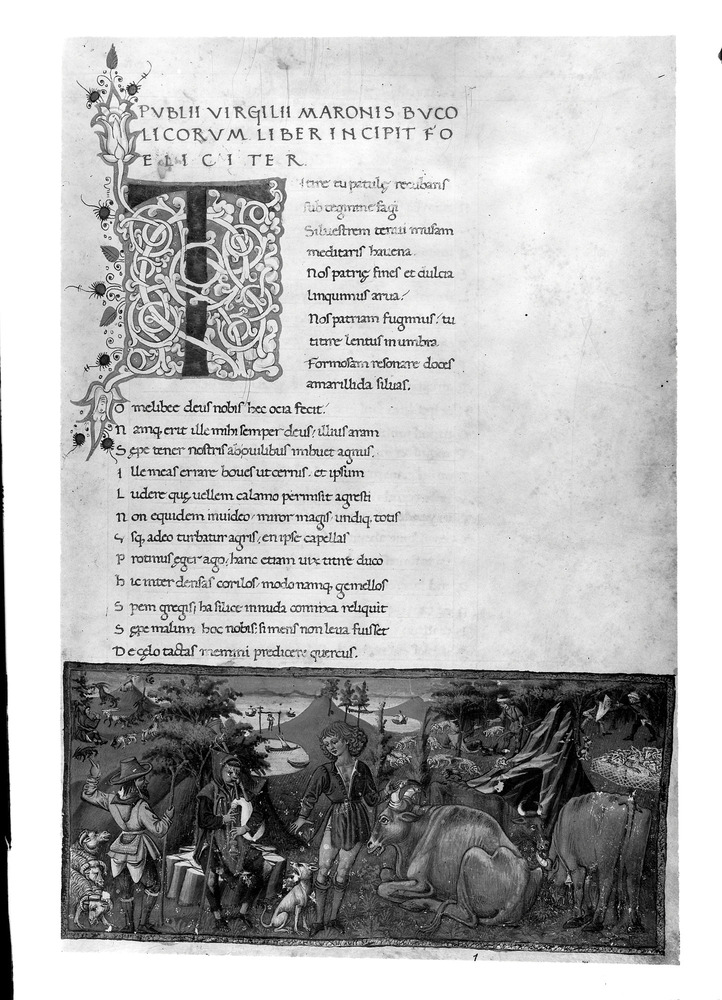 PVBLII VIRGILII MARONIS BVCO
LICORVM LIBER INCIPIT FO
ELICITER.
Titire tu patulę recubans
sub tegmine fagi
Siluestrem tenui musam
meditaris hauena.
Nos patrię fines et dulcia
linquimus arua:
Nos patriam fugimus: tu
titire lentus in umbra
Formosam resonare doces
amarillida siluas.
O melibee deus nobis hec ocia fecit.
Namq, erit ille mihi semper deus: illius aram
Sępe tener nostris ab ouilibus imbuet agnus.
Ille meas errare boues ut cernis. et ipsum
Ludere quę uellem calamo permisit agresti
Non equidem inuideo: miror magis: undiq, totis
Vsq, adeo turbatur agris: en ipse capellas
Protinus ęger ago: hanc etiam uix titire duco
Hic inter densas corilos: modo namq, gemellos
Spem gregis: ha silice in nuda connixa reliquit
Sępe malum hoc nobis: si mens non leua fuisset
De cęlo tactas memini predicere quercus.
1